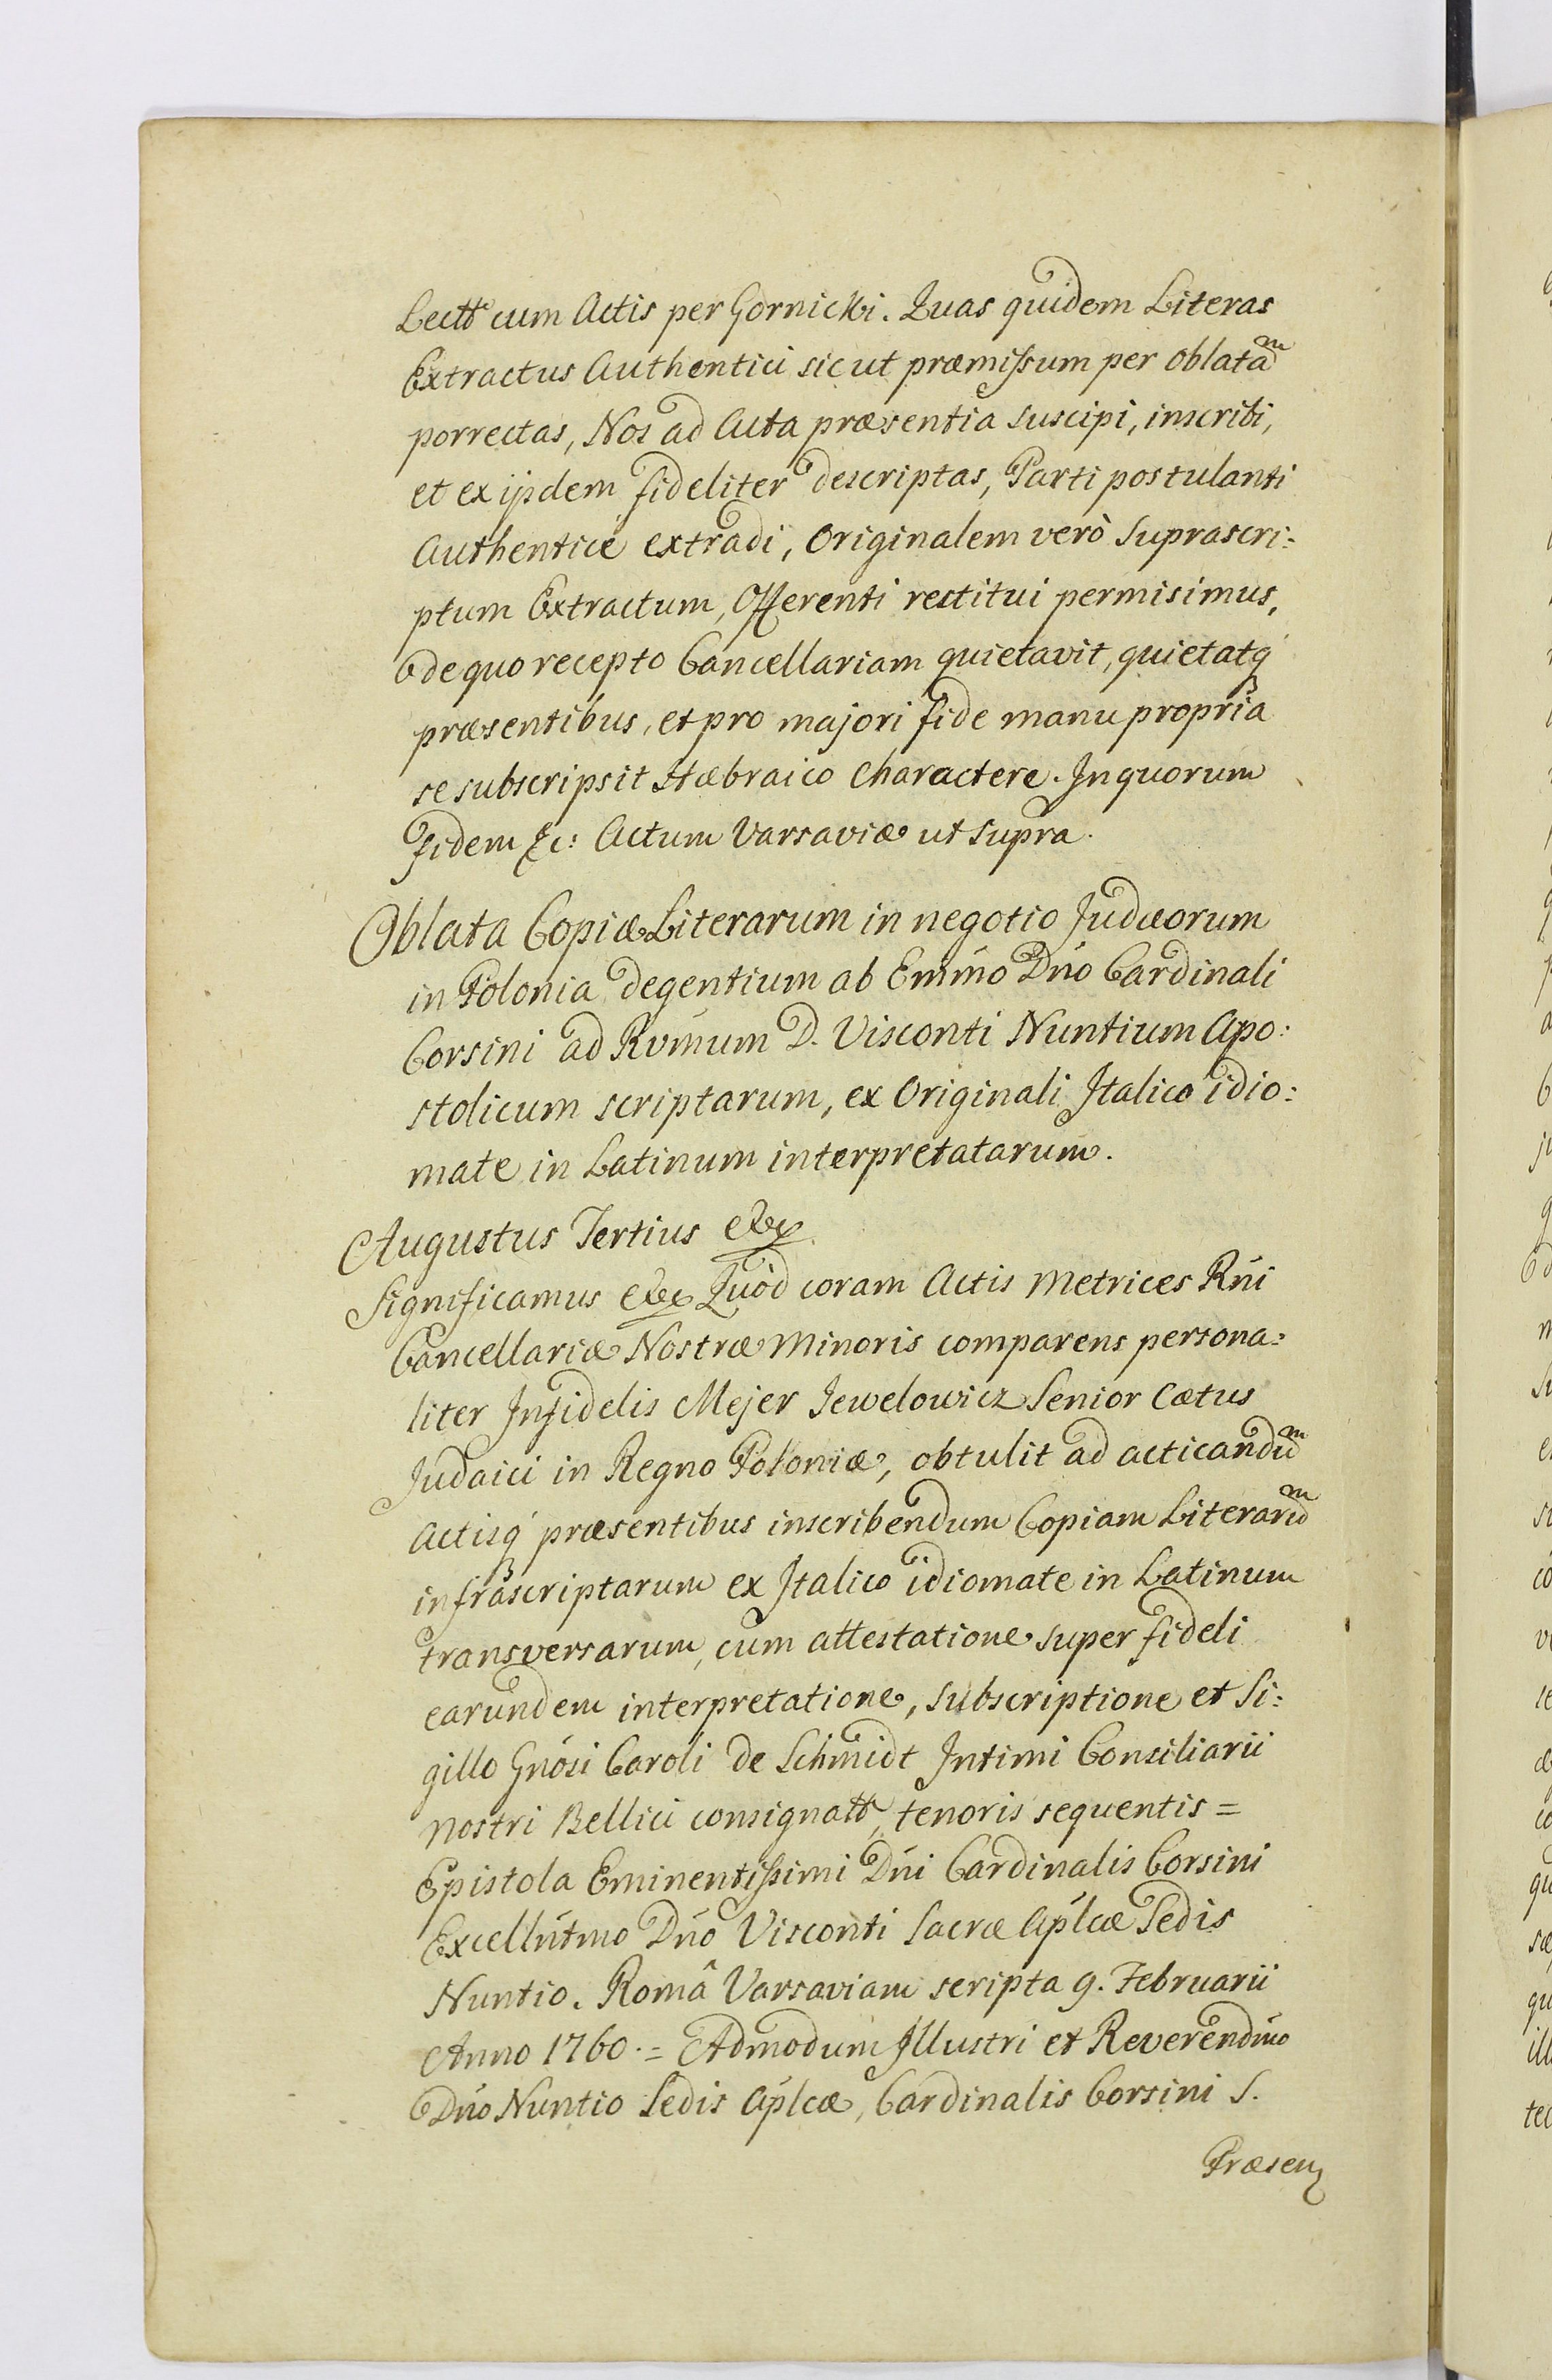 Lectt cum Actis per Gornicki. Quas quidem Literas
Extractus Authentici sicut præmissum per oblatam
porrectas, Nos ad Acta præsentia suscipi, inscribi,
et ex ijsdem fideliter descriptas, Parti postulanti
Authenticè extradi, Originalem verò suprascri:
ptum Extractum, Offerenti restitui permisimus,
de quo recepto Cancellariam quietavit, quietatq́
præsentibus, et pro majori fide manu propria
se subscripsit Hæbraico Charactere. In quorum
fidem &c: Actum Varsaviæ ut supra.
Oblata Copiæ Literarum in negotio Judæorum
in Polonia degentium ab Emńo Dńo Cardinali
Corsini ad Rvḿum D. Visconti Nuntium Apo:
stolicum scriptarum, ex Originali Italico idio:
mate in Latinum interpretatarum.
Augustus Tertius &c
Significamus &c Quòd coram Actis Metrices Rńi
Cancellariæ Nostræ Minoris comparens persona:
liter Infidelis Mejer Jewelowicz Senior Cœtus
Judaici in Regno Poloniæ, obtulit ad acticandum
Actisq́ præsentibus inscribendum Copiam Literarum
infrascriptarum ex Italico idiomate in Latinum
transversarum, cum attestatione super fideli
earundem interpretatione, subscriptione et Si:
gillo Gńosi Caroli de Schmidt Intimi Consiliarii
Nostri Bellici consignatt, tenoris sequentis =
Epistola Eminentissimi Dńi Cardinalis Corsini
Excellńtmo Dńo Visconti Sacræ Aplćæ Sedis
Nuntio. Româ Varsaviam scripta 9. Februarii
Anno 1760. = Admodum Illustri et Reverendḿo
Dńo Nuntio Sedis Aplćæ, Cardinalis Corsini S.
Præsen